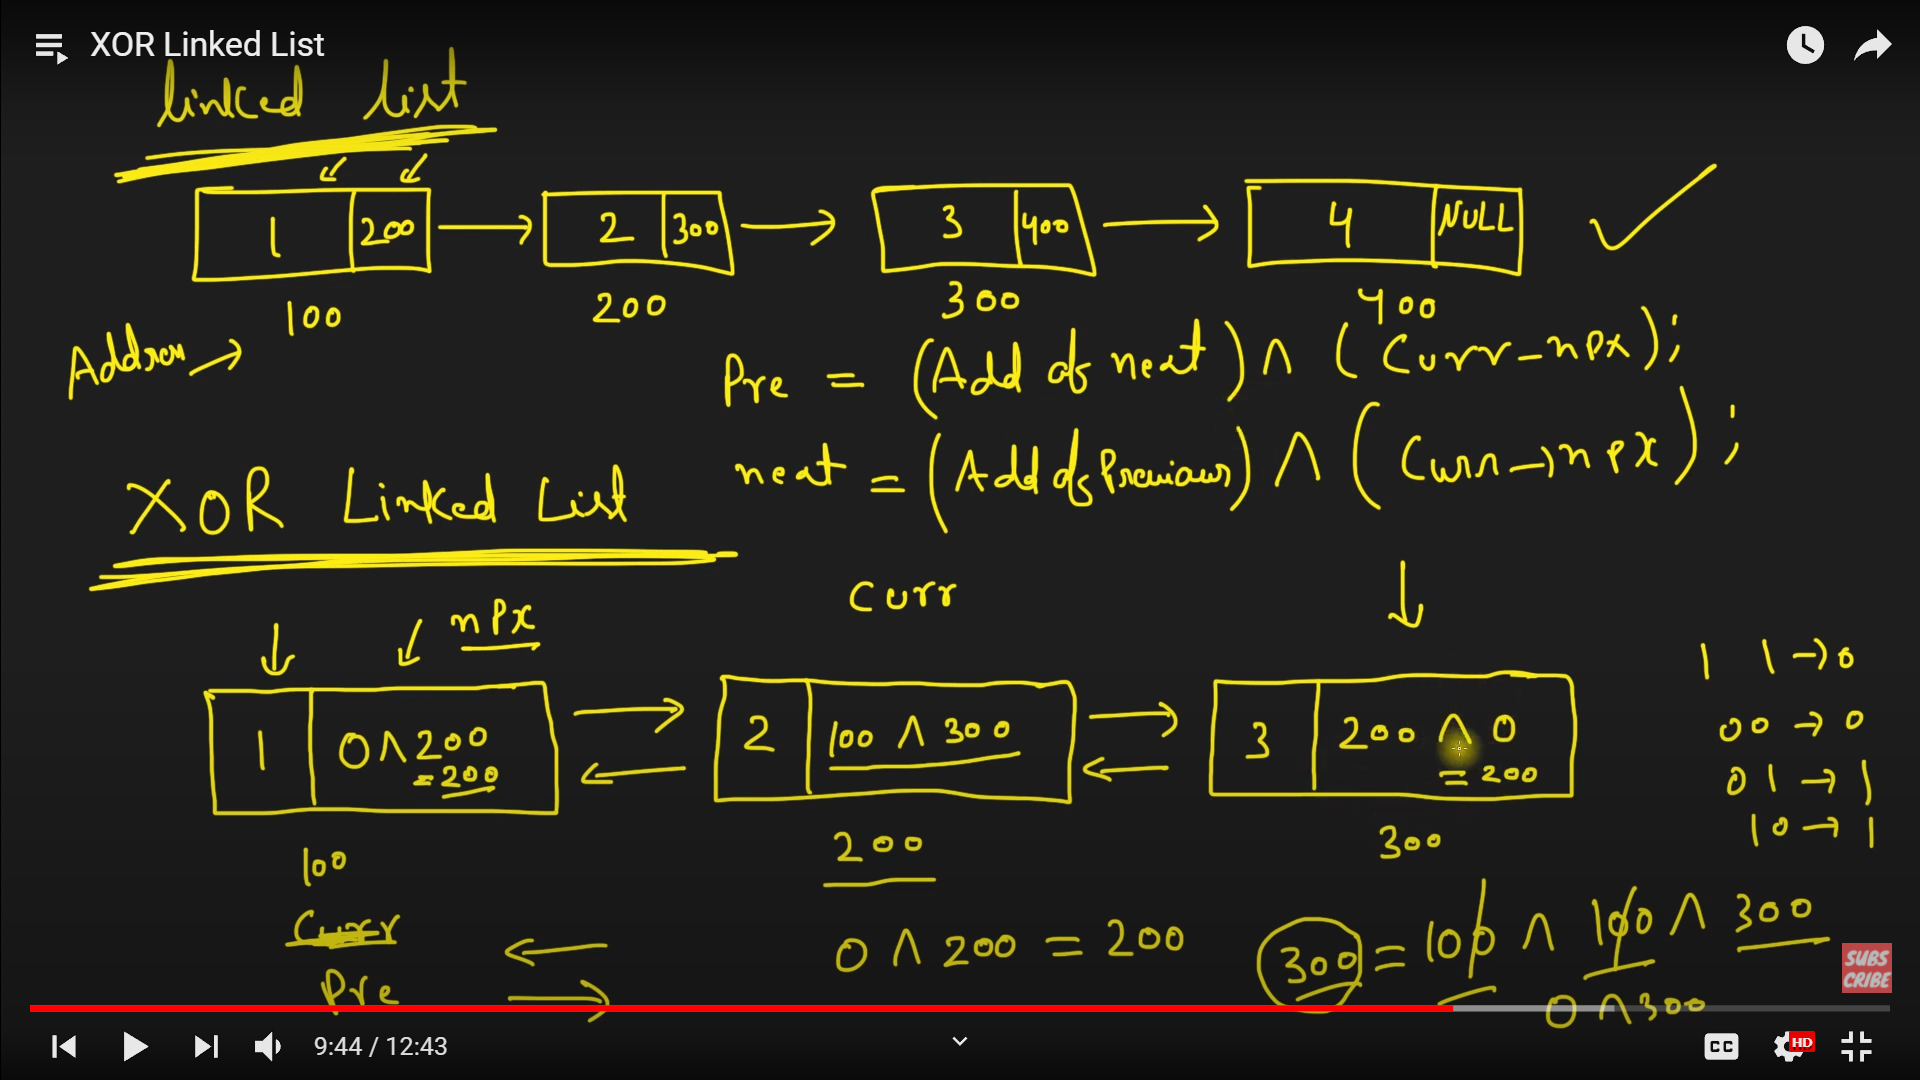 XOR Linked List
linked list
1 200 → 2 300 → 3 400 → 4 NULL
100 200 300 400
Address →
Pre = (Add of next) ^ (Curr–npx);
next = (Add of Previous) ^ (Curr→npx);
XOR Linked List
Curr
npx
1 1 → 0
0 0 → 0
0 1 → 1
1 0 → 1
1 0 ^ 200 = 200
2 100 ^ 300
3 200 ^ 0 = 200
100 200 300
Curr
Pre
0 ^ 200 = 200
300 = 100 ^ 100 ^ 300
0 ^ 300
SUBSCRIBE
9:44 / 12:43
CC
HD